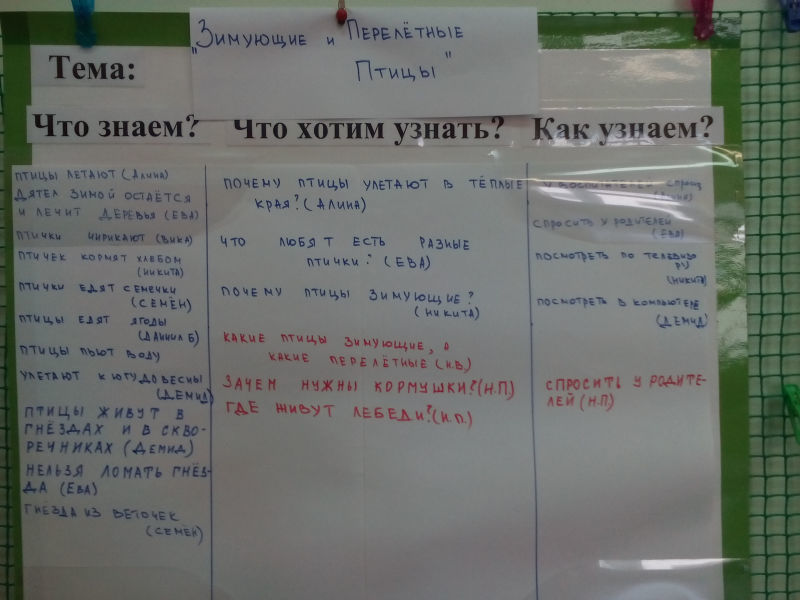 "Зимующие и Перелётные
Птицы"
Тема:
Что знаем? Что хотим узнать? Как узнаем?
ПТИЦЫ ЛЕТАЮТ (АЛИНА)
ДЯТЕЛ ЗИМОЙ ОСТАЁТСЯ
И ЛЕЧИТ ДЕРЕВЬЯ (ЕВА)
ПТИЧКИ ЧИРИКАЮТ (ВИКА)
ПТИЧЕК КОРМЯТ ХЛЕБОМ
(НИКИТА)
ПТИЧКИ ЕДЯТ СЕМЕЧКИ
(СЕМЁН)
ПТИЦЫ ЕДЯТ ЯГОДЫ
(ДАНИИЛ Б)
ПТИЦЫ ПЬЮТ ВОДУ
УЛЕТАЮТ К ЮГУ ДО ВЕСНЫ
(ДЕМИД)
ПТИЦЫ ЖИВУТ В
ГНЁЗДАХ И В СКВО-
РЕЧНИКАХ (ДЕМИД)
НЕЛЬЗЯ ЛОМАТЬ ГНЁЗ-
ДА (ЕВА)
ГНЁЗДА ИЗ ВЕТОЧЕК
(СЕМЁН)
ПОЧЕМУ ПТИЦЫ УЛЕТАЮТ В ТЁПЛЫЕ
КРАЯ? (АЛИНА)
ЧТО ЛЮБЯТ ЕСТЬ РАЗНЫЕ
ПТИЧКИ? (ЕВА)
ПОЧЕМУ ПТИЦЫ ЗИМУЮЩИЕ?
(НИКИТА)
КАКИЕ ПТИЦЫ ЗИМУЮЩИЕ, А
КАКИЕ ПЕРЕЛЁТНЫЕ (Н.В.)
ЗАЧЕМ НУЖНЫ КОРМУШКИ? (Н.П.)
ГДЕ ЖИВУТ ЛЕБЕДИ? (Н.П.)
У ВОСПИТАТЕЛЕЙ
(АЛИНА)
СПРОСИТЬ У РОДИТЕЛЕЙ
(ЕВА)
ПОСМОТРЕТЬ ПО ТЕЛЕВИЗО
РУ
(НИКИТА)
ПОСМОТРЕТЬ В КОМПЬЮТЕРЕ
(ДЕМИД)
СПРОСИТЬ У РОДИТЕ-
ЛЕЙ (Н.П.)